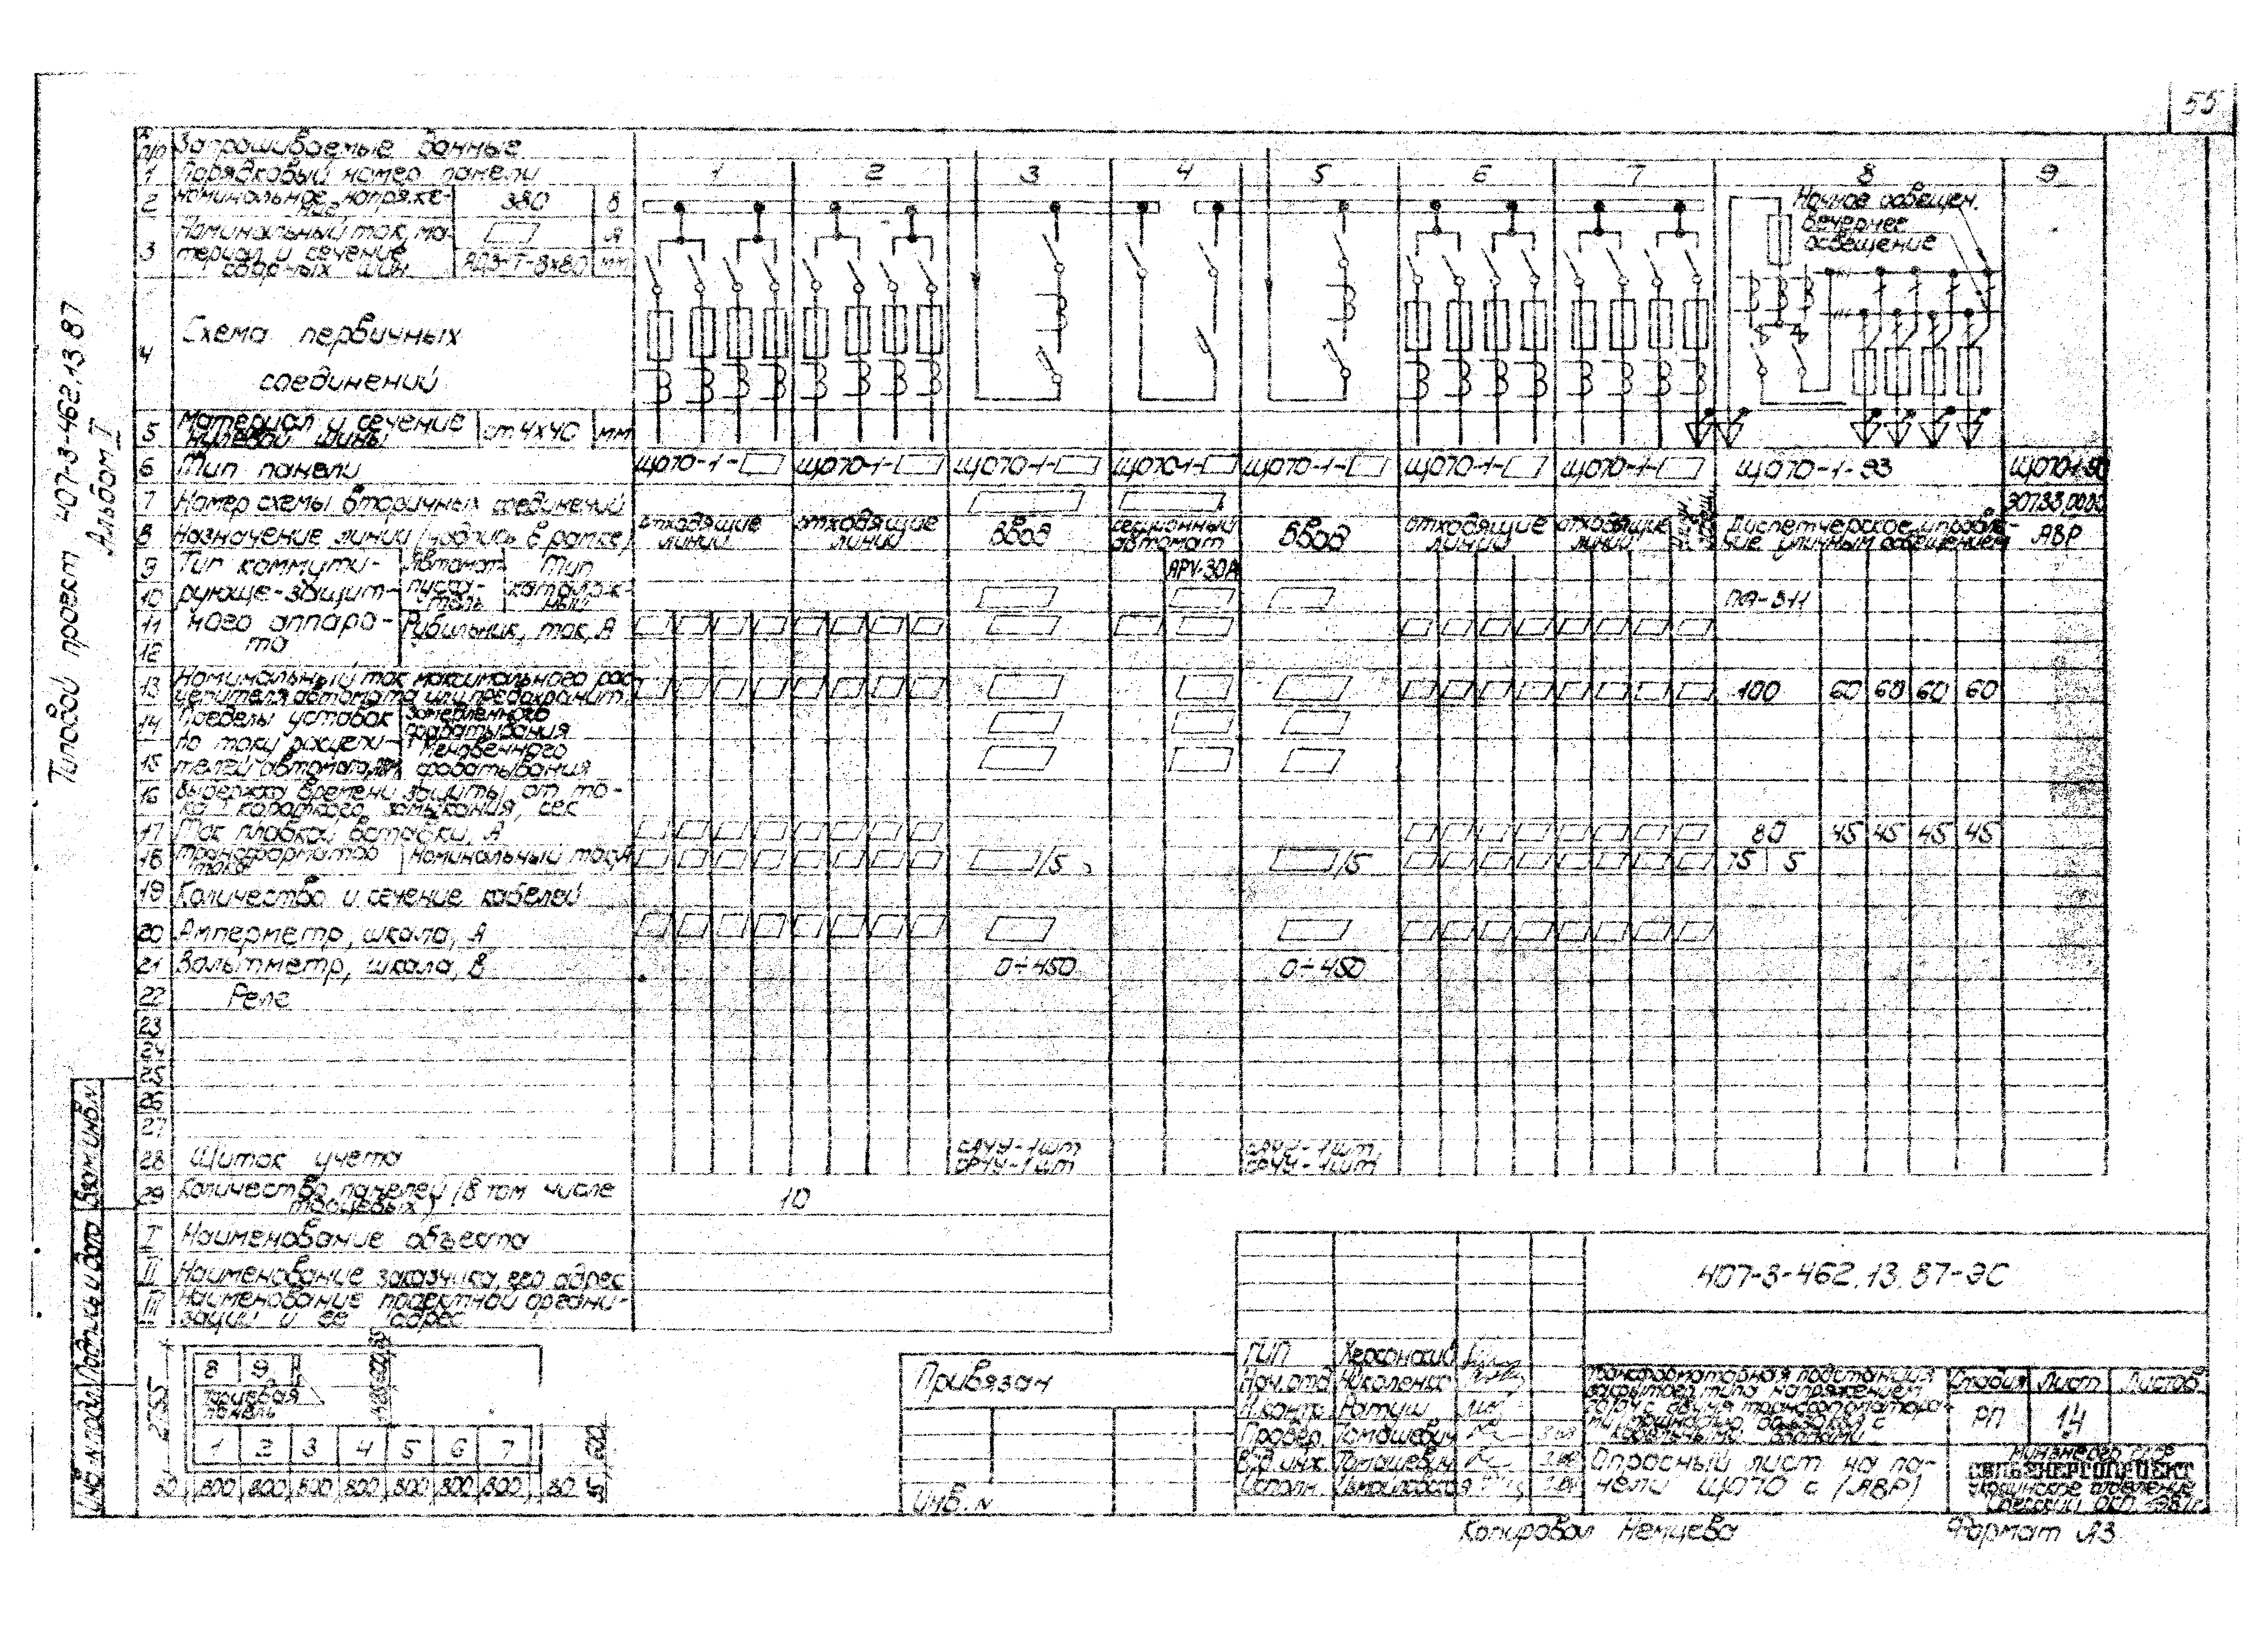 55
Типовой проект 407-3-462.13.87
Альбом I
Запрашиваемые данные
1 Порядковый номер панели 1 2 3 4 5 6 7 8 9
2 Номинальное напряже-
ние 380 В
3 Номинальный ток, ма-
териал и сечение
сборных шин. А
АД31-Т-8х80 мм
Ночное освещен.
Вечернее
освещение
4 Схема первичных
соединений
5 Материал и сечение
нулевой шины ст.4х40 мм
6 Тип панели ЩО70-1- ЩО70-1- ЩО70-1- ЩО70-1- ЩО70-1- ЩО70-1- ЩО70-1- ЩО70-1-93 ЩО70-1-90
7 Номер схемы вторичных соединений
8 Назначение линии (надпись в рамке)
отходящие
линии
отходящие
линии
ввод
секционный
автомат
ввод
отходящие
линии
отходящие
линии
Диспетчерское управле-
ние уличным освещением
АВР
9 Тип коммути-
10 рующе-защит-
11 ного аппара-
12 та
Автомат
пуска-
тель
Тип
каталож-
ный
АРУ-30А
ПА-311
Рубильник, ток, А
13 Номинальный ток максимального рас-
цепителя автомата или предохранит. 100 60 60 60 60
14 Пределы уставок
по току расцепи-
15 телей автомата,
замедленного
срабатывания
мгновенного
срабатывания
16 Выдержка времени защиты от то-
ка короткого замыкания, сек
17 Ток плавкой вставки, А 80 45 45 45 45
18 Трансформатор
тока Номинальный ток, А /5 /5 75 5
19 Количество и сечение кабелей
20 Амперметр, шкала, А
21 Вольтметр, шкала, В 0÷450 0÷450
22 Реле
23
24
25
26
27
28 Щиток учета
САЧУ-1шт
СРЧУ-1шт
САЧУ-1шт
СРЧУ-1шт
29 Количество панелей (в том числе
торцевых) 10
I Наименование объекта
II Наименование заказчика, его адрес
III Наименование проектной органи-
зации и ее адрес
8 9
торцевая
панель
1 2 3 4 5 6 7
2755
50 800 800 800 800 800 800 800 50
600
Привязан
Инв. N
407-3-462.13.87-ЭС
ГИП Херсонский
Нач.отд. Николенко
Н.контр. Ратуш
Провер. Томашевич
Вед.инж. Томашевич
Исполн.
Трансформаторная подстанция
закрытого типа напряжением
кабельными вводами
Стадия Лист Листов
РП 14
Опросный лист на па-
нели ЩО70 с (АВР)
Минэнерго СССР
СЕЛЬЭНЕРГОПРОЕКТ
Украинское отделение
Одесский ОКП 1987г.
Инв. N подл. Подпись и дата Взам.инв.N
Копировал Немцева Формат А3